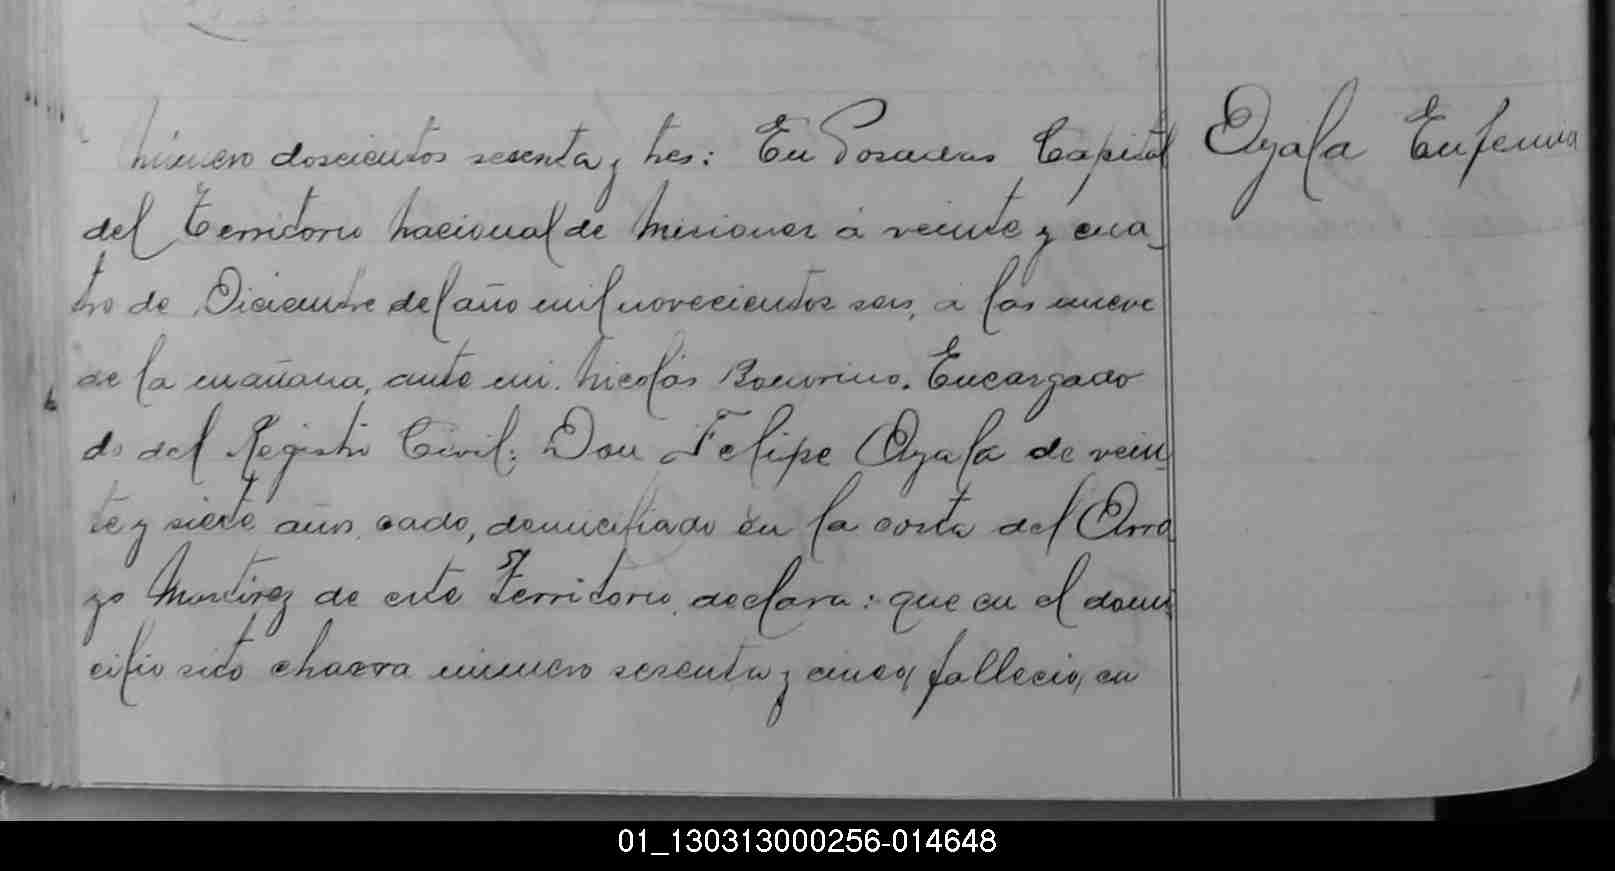 Número doscientos sesenta y tres: En Posadas Capital
Ayala Eufemia
del Territorio Nacional de Misiones á veinte y cua-
tro de Diciembre del año mil novecientos seis, á las nueve
de la mañana, ante mi. Nicolás Encargado
do del Registro Civil: Don Felipe Ayala de vein
te y siete años, cado, domiciliado en la costa del Arro
yo Martirez de este Territorio, declara: que en el domi
cilio sito chacra número sesenta y cinco, falleció, en
01_130313000256-014648